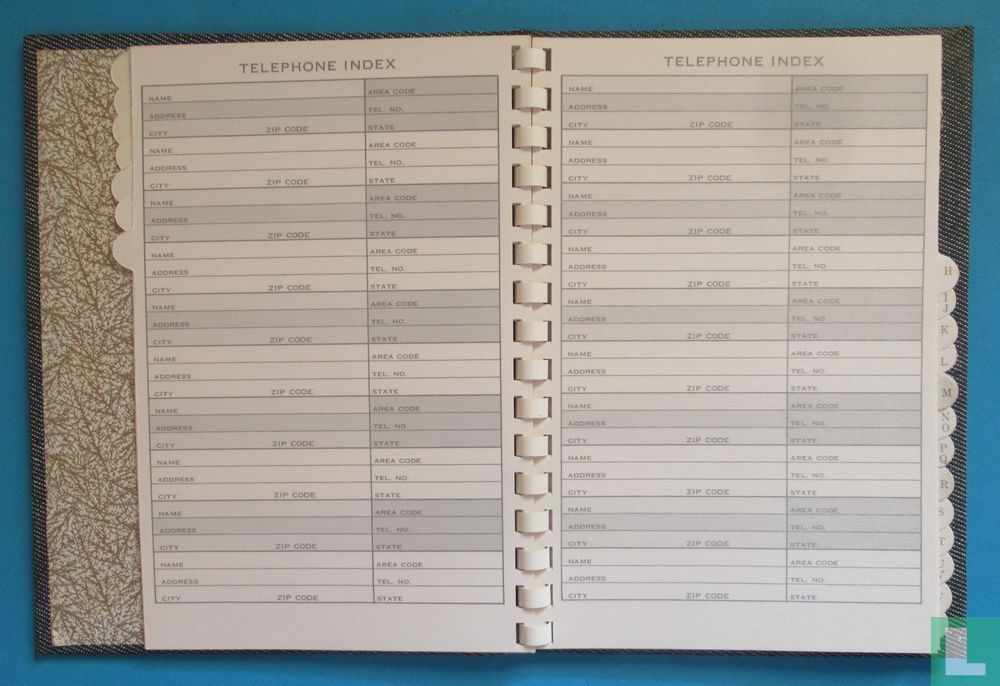 TELEPHONE INDEX
NAME AREA CODE
ADDRESS TEL. NO.
CITY ZIP CODE STATE
NAME AREA CODE
ADDRESS TEL. NO.
CITY ZIP CODE STATE
NAME AREA CODE
ADDRESS TEL. NO.
CITY ZIP CODE STATE
NAME AREA CODE
ADDRESS TEL. NO.
CITY ZIP CODE STATE
NAME AREA CODE
ADDRESS TEL. NO.
CITY ZIP CODE STATE
NAME AREA CODE
ADDRESS TEL. NO.
CITY ZIP CODE STATE
NAME AREA CODE
ADDRESS TEL. NO.
CITY ZIP CODE STATE
NAME AREA CODE
ADDRESS TEL. NO.
CITY ZIP CODE STATE
NAME AREA CODE
ADDRESS TEL. NO.
CITY ZIP CODE STATE
NAME AREA CODE
ADDRESS TEL. NO.
CITY ZIP CODE STATE
TELEPHONE INDEX
NAME AREA CODE
ADDRESS TEL. NO.
CITY ZIP CODE STATE
NAME AREA CODE
ADDRESS TEL. NO.
CITY ZIP CODE STATE
NAME AREA CODE
ADDRESS TEL. NO.
CITY ZIP CODE STATE
NAME AREA CODE
ADDRESS TEL. NO.
CITY ZIP CODE STATE
NAME AREA CODE
ADDRESS TEL. NO.
CITY ZIP CODE STATE
NAME AREA CODE
ADDRESS TEL. NO.
CITY ZIP CODE STATE
NAME AREA CODE
ADDRESS TEL. NO.
CITY ZIP CODE STATE
NAME AREA CODE
ADDRESS TEL. NO.
CITY ZIP CODE STATE
NAME AREA CODE
ADDRESS TEL. NO.
CITY ZIP CODE STATE
NAME AREA CODE
ADDRESS TEL. NO.
CITY ZIP CODE STATE
H
I
J
K
L
M
N
O
P
Q
R
S
T
L